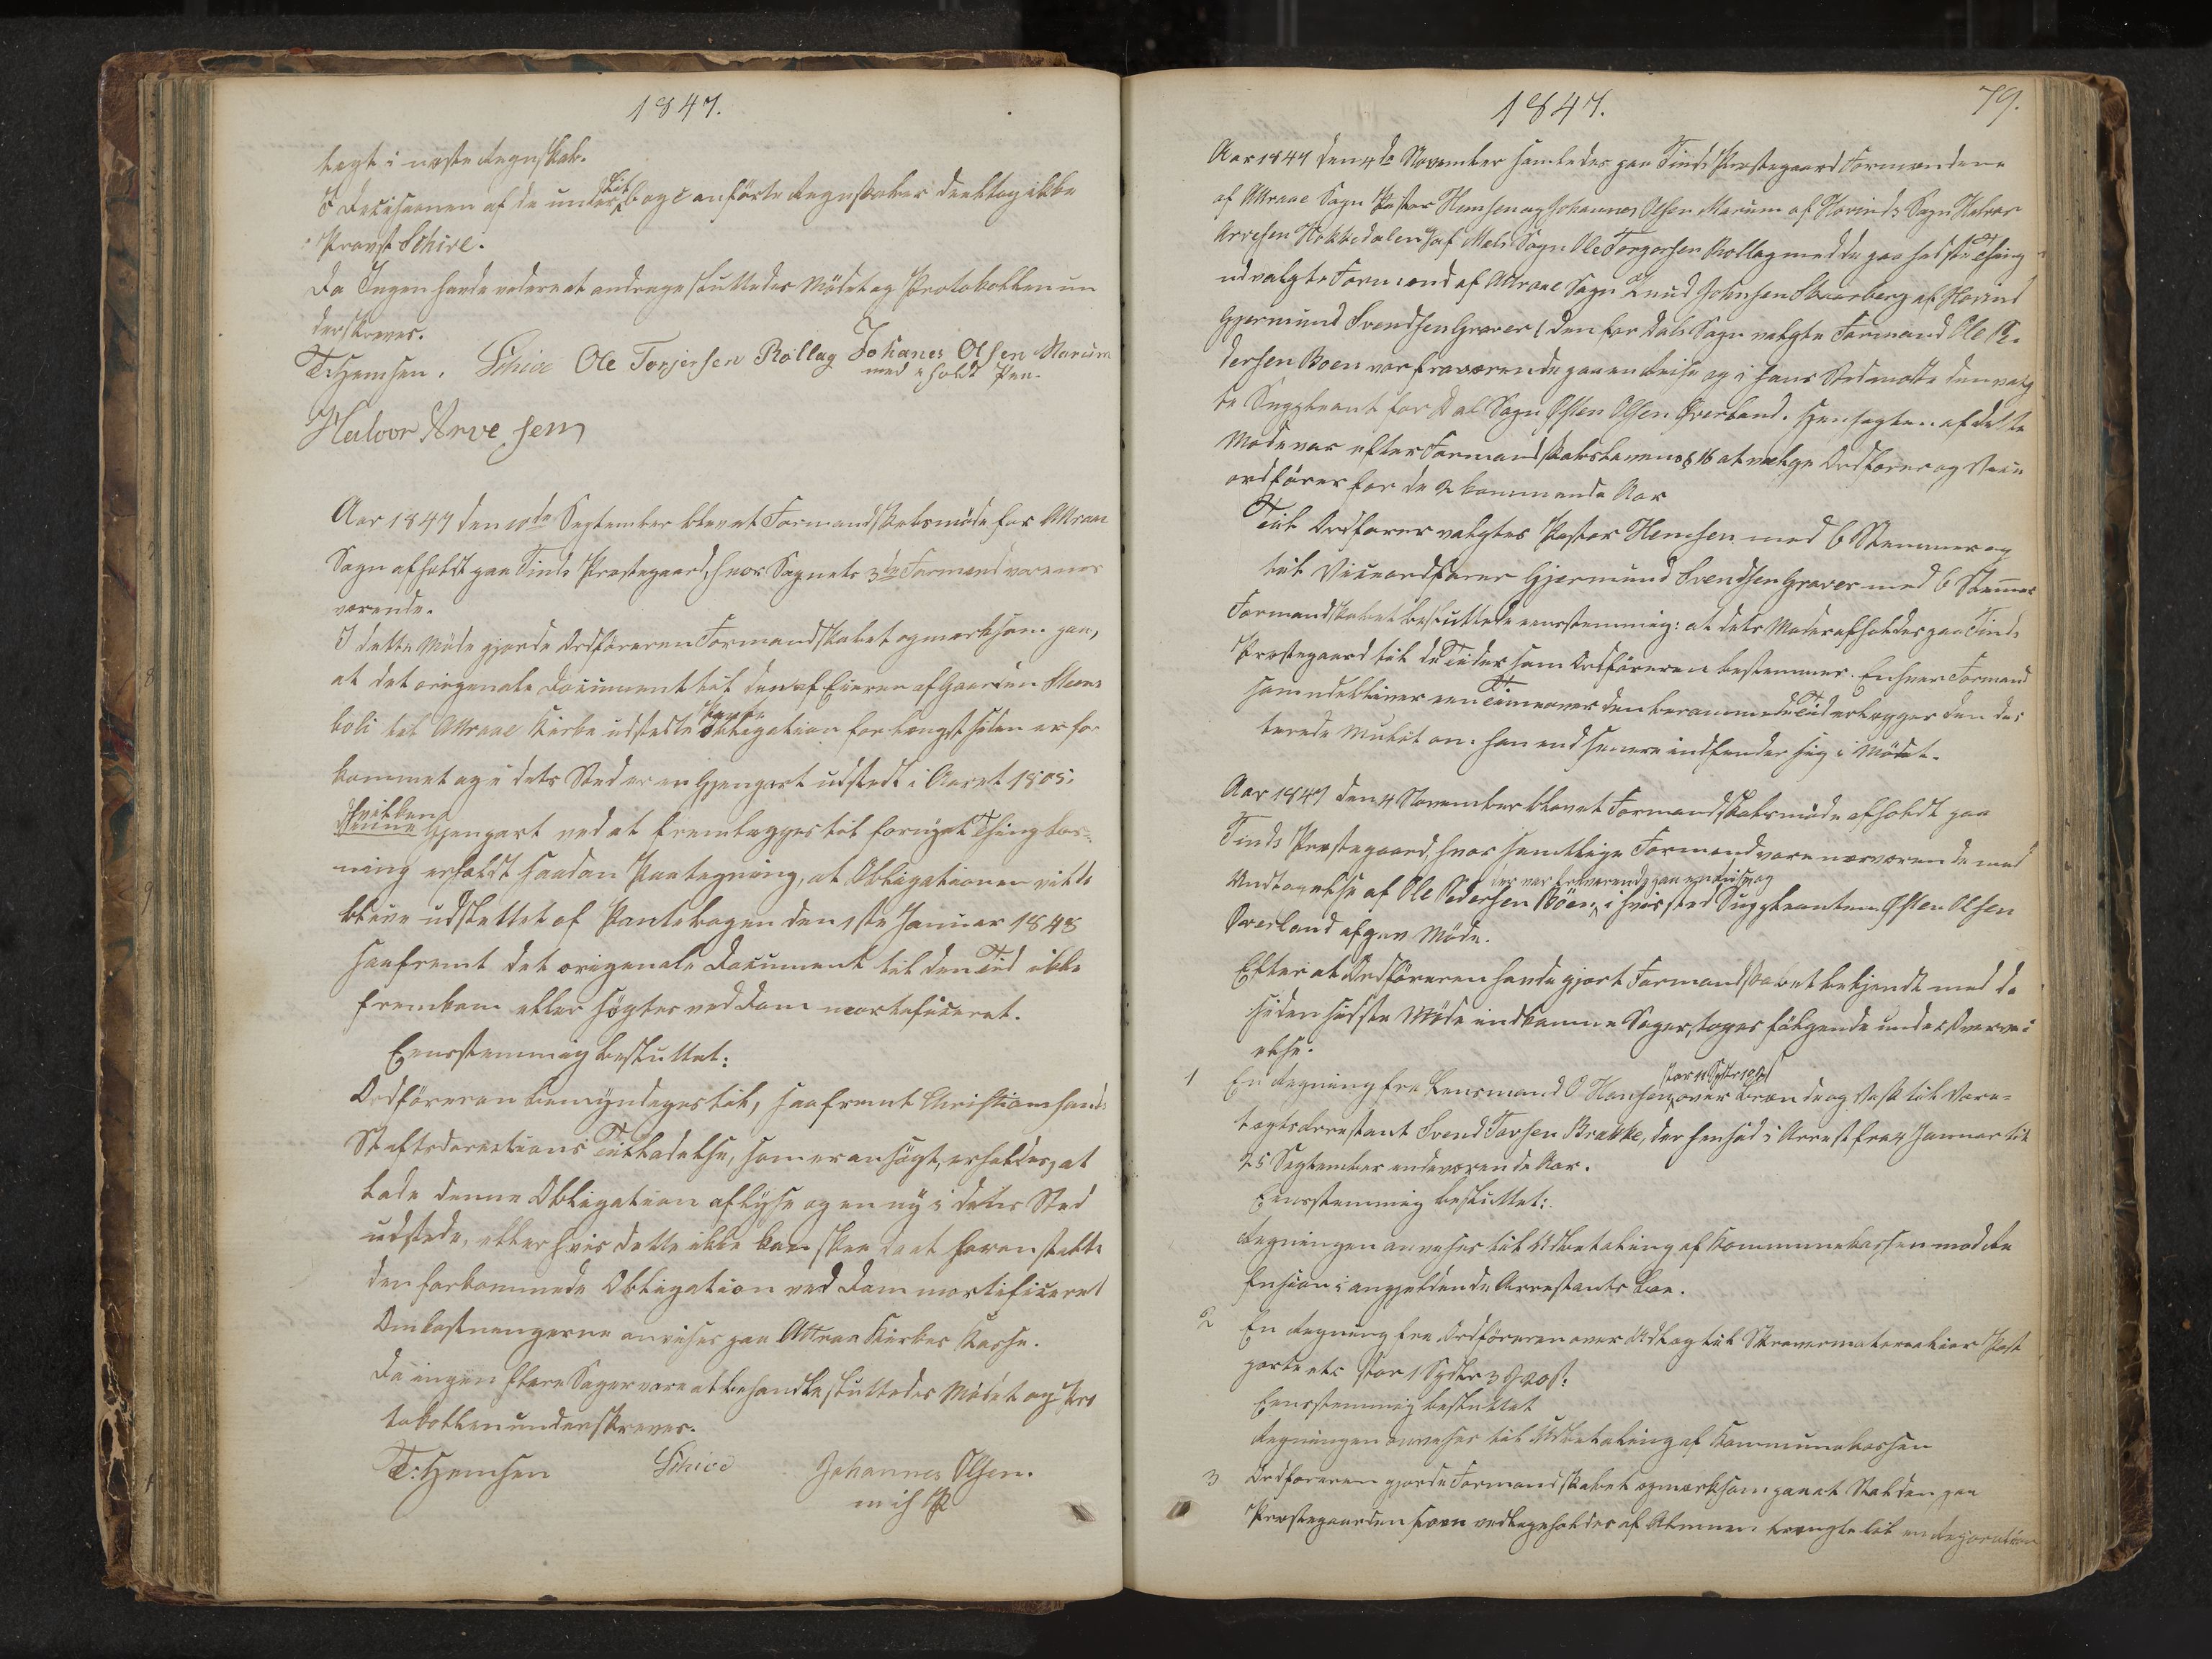 1847.
tegt i næste Regnskab.
I Decisionen af de under Lit b og c anførte Regnskaber deeltog ikke
Provst Schive.
Da Ingen havde videre at andrage sluttedes Mødet og Protokollen un
derskreves.
T. Hemsen. Schive Ole Torjersen Rollag Johanes Olsen Marum
med eholdt Pen.
Halvor Arvesen
Aar 1847 den 10de September blev et Formandskabsmøde for Attraae
Sogn afholdt paa Tinds Præstegaard, hvor Sognets 3de Formænd vare nær
værende.
I dette Møde gjorde Ordføreren Formandskabet opmærksom paa,
at det originale Document til den af Eieren af Gaarden
boli til Attraae Kirke udstedte Obligation for længst siden er for
kommet og i dets Sted er en Gjenpart udstedt i Aaret 1805.
hvilken
denne Gjenpart ved at fremlægges til fornyet Thinglæs-
ning erholdt saadan Paategning, at Obligationen vilde
blive udslettet af Pantebogen den 1ste Januar 1848
saafremt det originale Document til den Tid ikke
fremkom eller søgtes ved Dom mortificeret.
Eensstemmig besluttet:
Ordføreren bemyndiges til, saafremt Christiansands
Stiftsdirections Tilladelse, som er ansøgt, erholdes, at
lade denne Obligation aflyse og en ny i dens Sted
udstede, eller hvis dette ikke kan skee da at foranstalte
den forkommede Obligation ved Dom mortificeret
Omkostningerne anvises paa Attraa Kirkes Kasse.
Da ingen flere Sager vare at behandle sluttedes Mødet og Pro
tokollen underskreves.
T. Hemsen Schive Johannes Olsen.
m i h P
1847. 79.
Aar 1847 den 4de November samledes paa Tinds Præstegaard Formændene
af Attraae Sogn Pastor Hemsen og Johannes Olsen Marum af Hovinds Sogn Halvor
Arvesen Kokkedalen, af Mels Sogn Ole Torgersen Rollag med de paa sidste Thing
udvalgte Formænd af Attraae Sogn Knud Johnsen Skaarberg af Hovind
Gjermund Svendsen Graver (den for Dals Sogn valgte Formand Ole Pe
dersen Boen var fraværende paa en Reise og i hans Sted mødte den valg
te Suppleant for Dal Sogn Østen Olsen Øverland. Hensigten af dette
Møde var efter Formandskabslovens § 16 at vælge Ordfører og Vice
ordfører for de 2 kommende Aar
Til Ordfører valgtes Pastor Hemsen med 6 Stemmer og
til Viceordfører Gjermund Svendsen Graver med 6 Stemer
Formandskabet besluttede eensstemmig: at dets Møder afholdes paa Tinds
Præstegaard til de Tider som Ordføreren bestemmer. Enhver Formand
som udebliver een Time over den berammede Tid erlægger den dic
terede Mulct om han end senere indfinder sig i Mødet.
Aar 1847 den 4 November blev et Formandskabsmøde afholdt paa
Tinds Præstegaard, hvor samtlige Formænd vare nærværende med
der var fraværende paa en Reise og
Undtagelse af Ole Pedersen Boen, i hvis sted Suppleanten Østen Olsen
Øverland afgav Møde.
Efter at Ordføreren havde gjort Formandskabet bekjendt med de
siden sidste Møde indkomne Sager, toges følgende under Overvei
else.
stor 11 Spdlr
1 En Regning fra Lensmand O Hansen, over Brænde og Vask til Vare-
tægtsarrestant Svend Torsen Brække, der hensad i Arrest fra 4 Januar til
25 September indeværende Aar.
Eensstemmig besluttet:
Regningen anvises til Udbetaling af Kommunekassen mod Re
fusion i angjeldende Arrestants Boe.
2 En Regning fra Ordføreren over Udlæg til Skrivematerialier Post
porto etc stor 1 Spdlr 3 20 s:
Eensstemmig besluttet
Regningen anvises til Udbetaling af Kommunekassen
3 Ordføreren gjorde Formandskabet opmærksom paa at Stalden paa
Præstegaarden som vedligeholdes af Almuen trængte til en Reparation